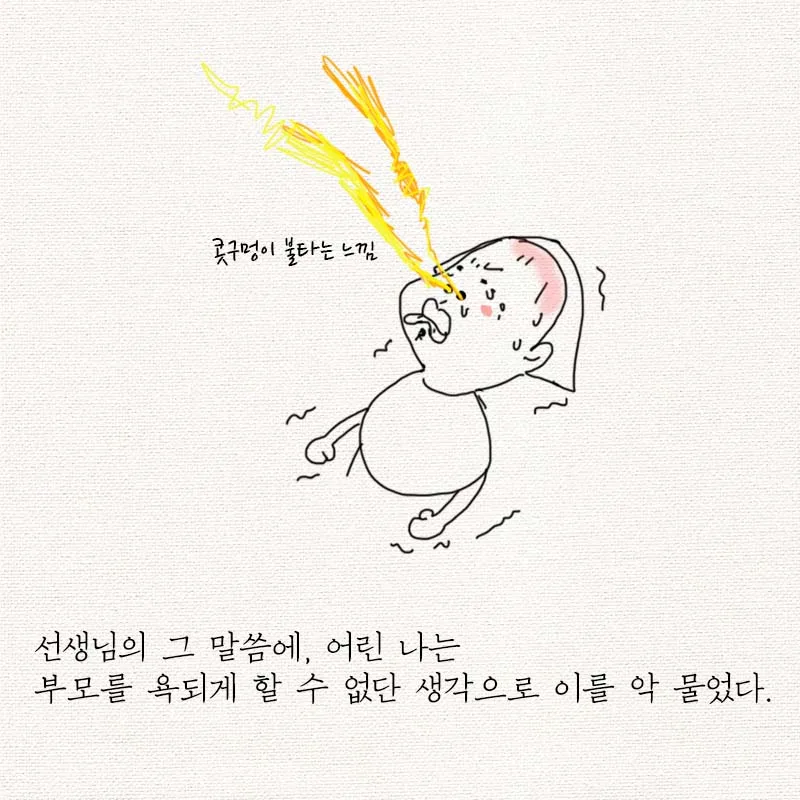 콧구멍이 불타는 느낌
선생님의 그 말씀에, 어린 나는
부모를 욕되게 할 수 없단 생각으로 이를 악 물었다.